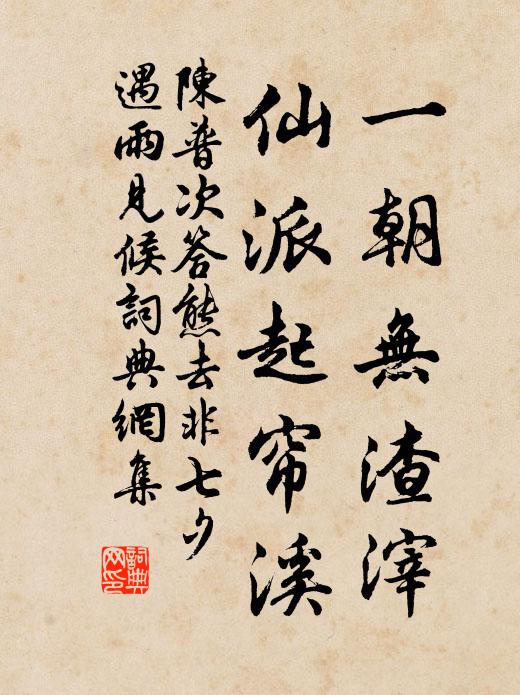 一朝無渣滓
仙派起帘溪
陳普次答熊去非七夕
遇雨見候詞典網集
詞典網印